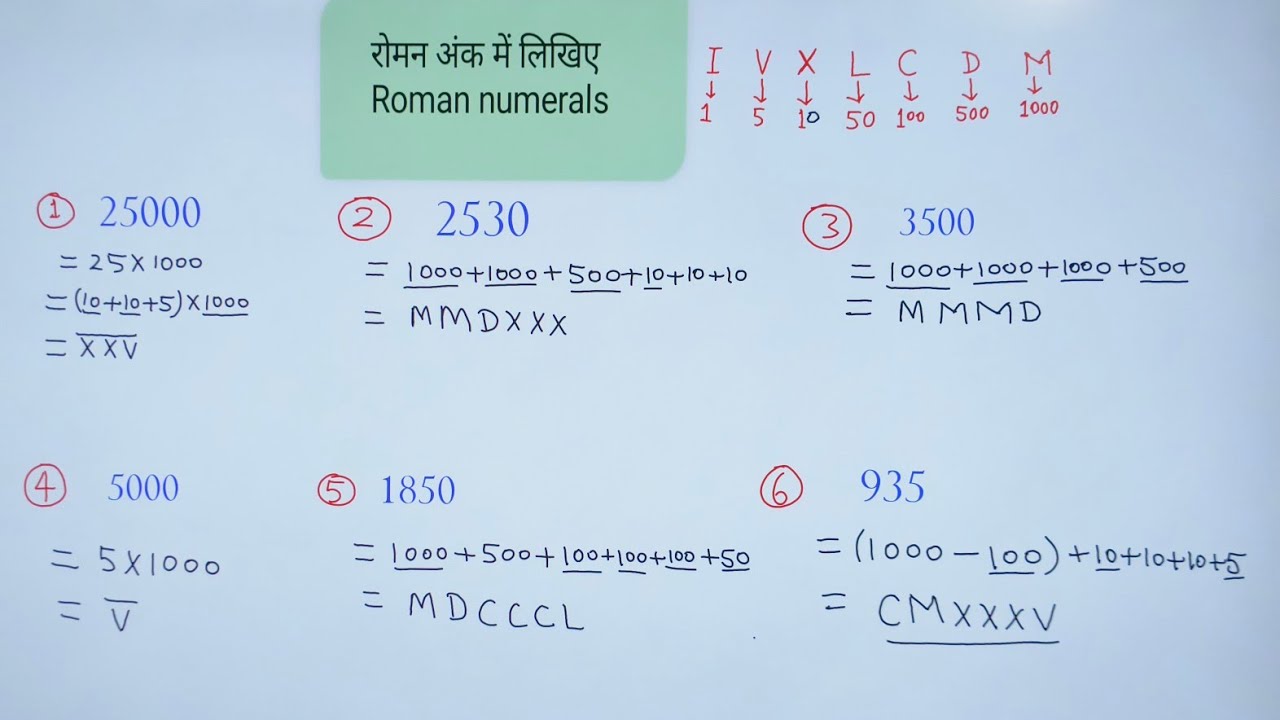 रोमन अंक में लिखिए
Roman numerals
I V X L C D M
↓ ↓ ↓ ↓ ↓ ↓ ↓
1 5 10 50 100 500 1000
① 25000
= 25 × 1000
= (10+10+5) × 1000
= X̅X̅V̅
② 2530
= 1000+1000+500+10+10+10
= MMDXXX
③ 3500
= 1000+1000+1000+500
= MMMD
④ 5000
= 5×1000
= V̅
⑤ 1850
= 1000+500+100+100+100+50
= MDCCCL
⑥ 935
= (1000-100)+10+10+10+5
= CMXXXV